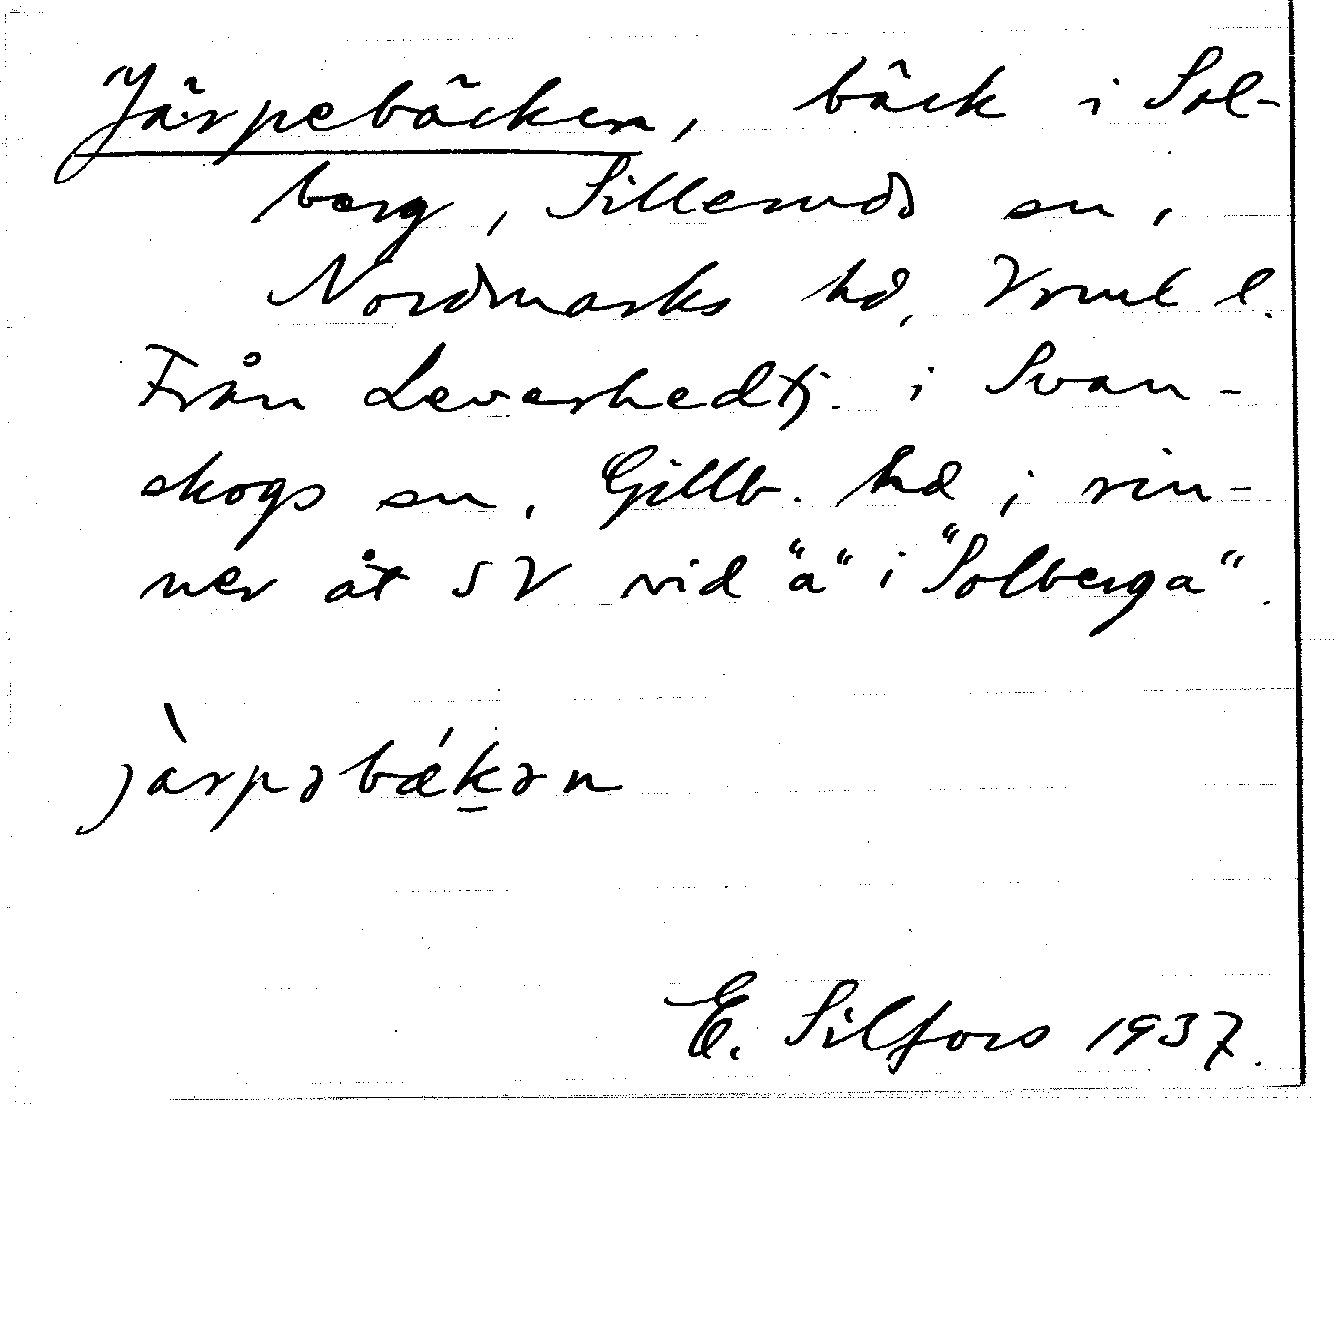 Järpebäcken, bäck i Sol-
berg, Silleruds sn,
Nordmarks hd, Vrml l.
Från Leverhedtj. i Svan-
skogs sn, Gillb. hd; rin-
ner åt SV vid "a" i "Solberga".
jàrpəbǽḵən
E. Silfors 1937.